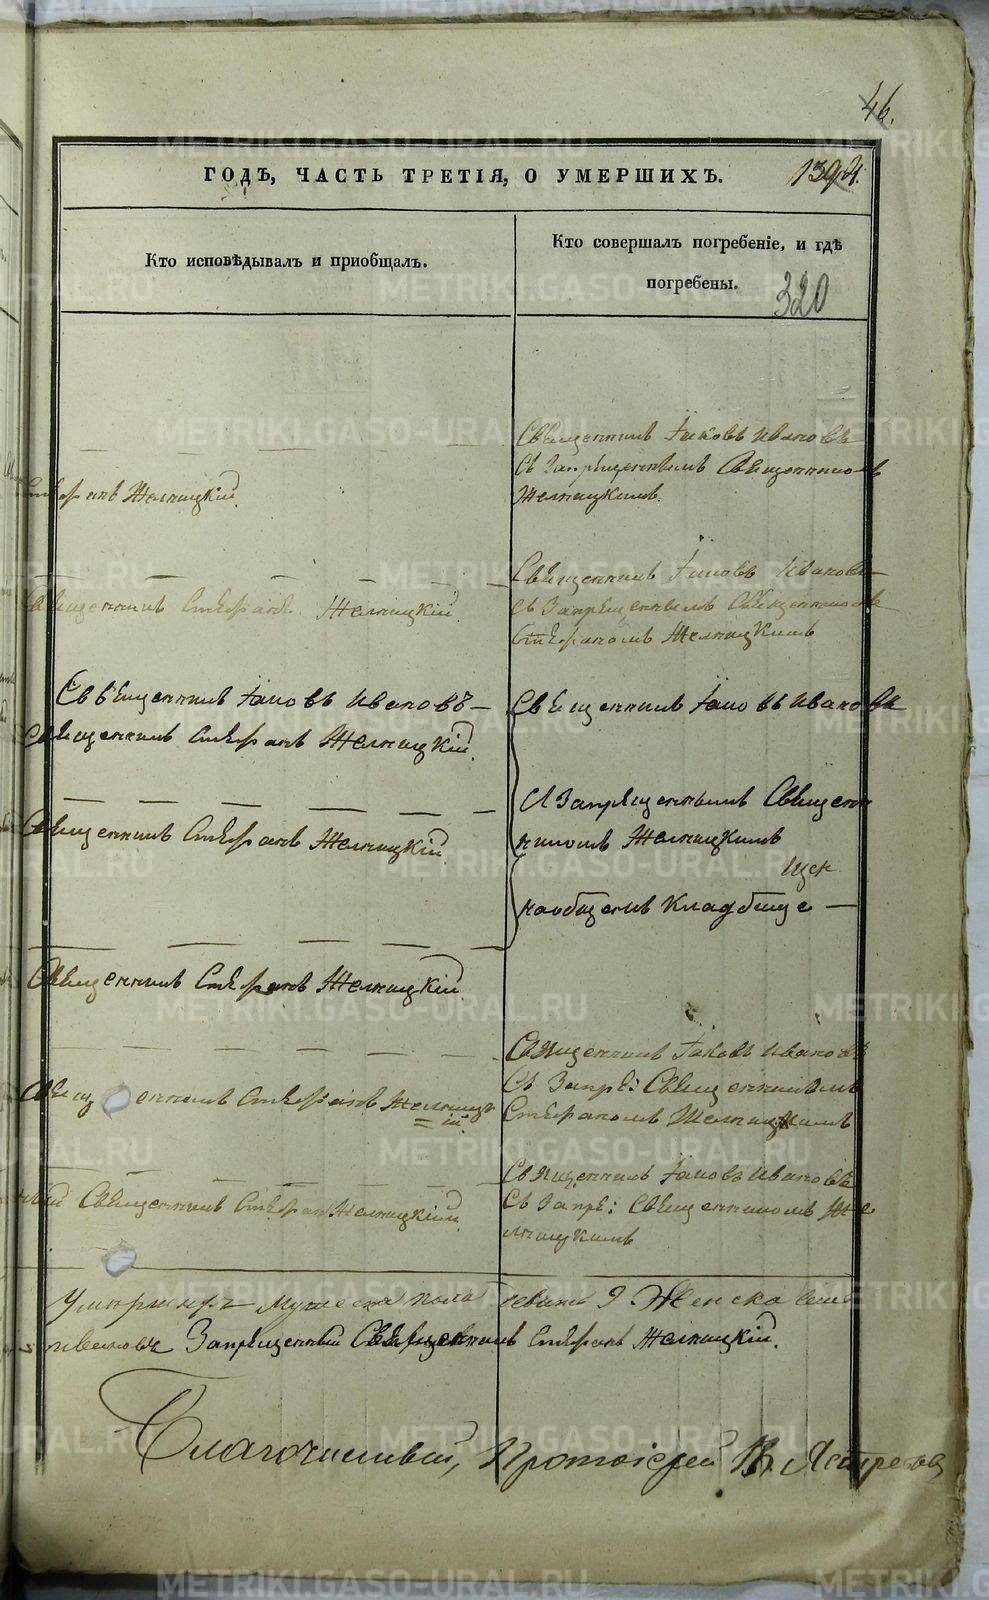 46.
ГОДЪ, ЧАСТЬ ТРЕТІЯ, О УМЕРШИХЪ.
Кто исповѣдывалъ и приобщалъ.
Кто совершалъ погребеніе, и гдѣ
погребены.
320
Священникъ Іаковъ Ивановъ
съ Запрѣщеннымъ Священникомъ
Желницкимъ.
Стефанъ Желницкій.
Священникъ Іаковъ Ивановъ
съ Запрѣщеннымъ Священникомъ
Стефаномъ Желницкимъ
Священникъ Стефанъ Желницкій.
Священникъ Іаковъ Ивановъ
Священникъ Стефанъ Желницкій.
Священникъ Іаковъ Ивановъ
Священникъ Стефанъ Желницкій
И Запрѣщеннымъ Священ
никомъ Желницкимъ
на общемъ Кладбище
Священникъ Стефанъ Желницкій
Священникъ Іаковъ Ивановъ
Съ Запрѣ: Священникомъ
Стефаномъ Желницкимъ
Священникъ Стефанъ Желницк
=ій.
Священникъ Іаковъ Ивановъ
Съ Запрѣ: Священникомъ Же
лницкимъ
Священникъ Стефанъ Желницкій
Мужеска пола 9 Женска
Ивановъ Запрѣщенный Священникъ Стефанъ Желницкій.
Благочинный, Протоіерей В. Ястребовъ
METRIKI.GASO-URAL.RU